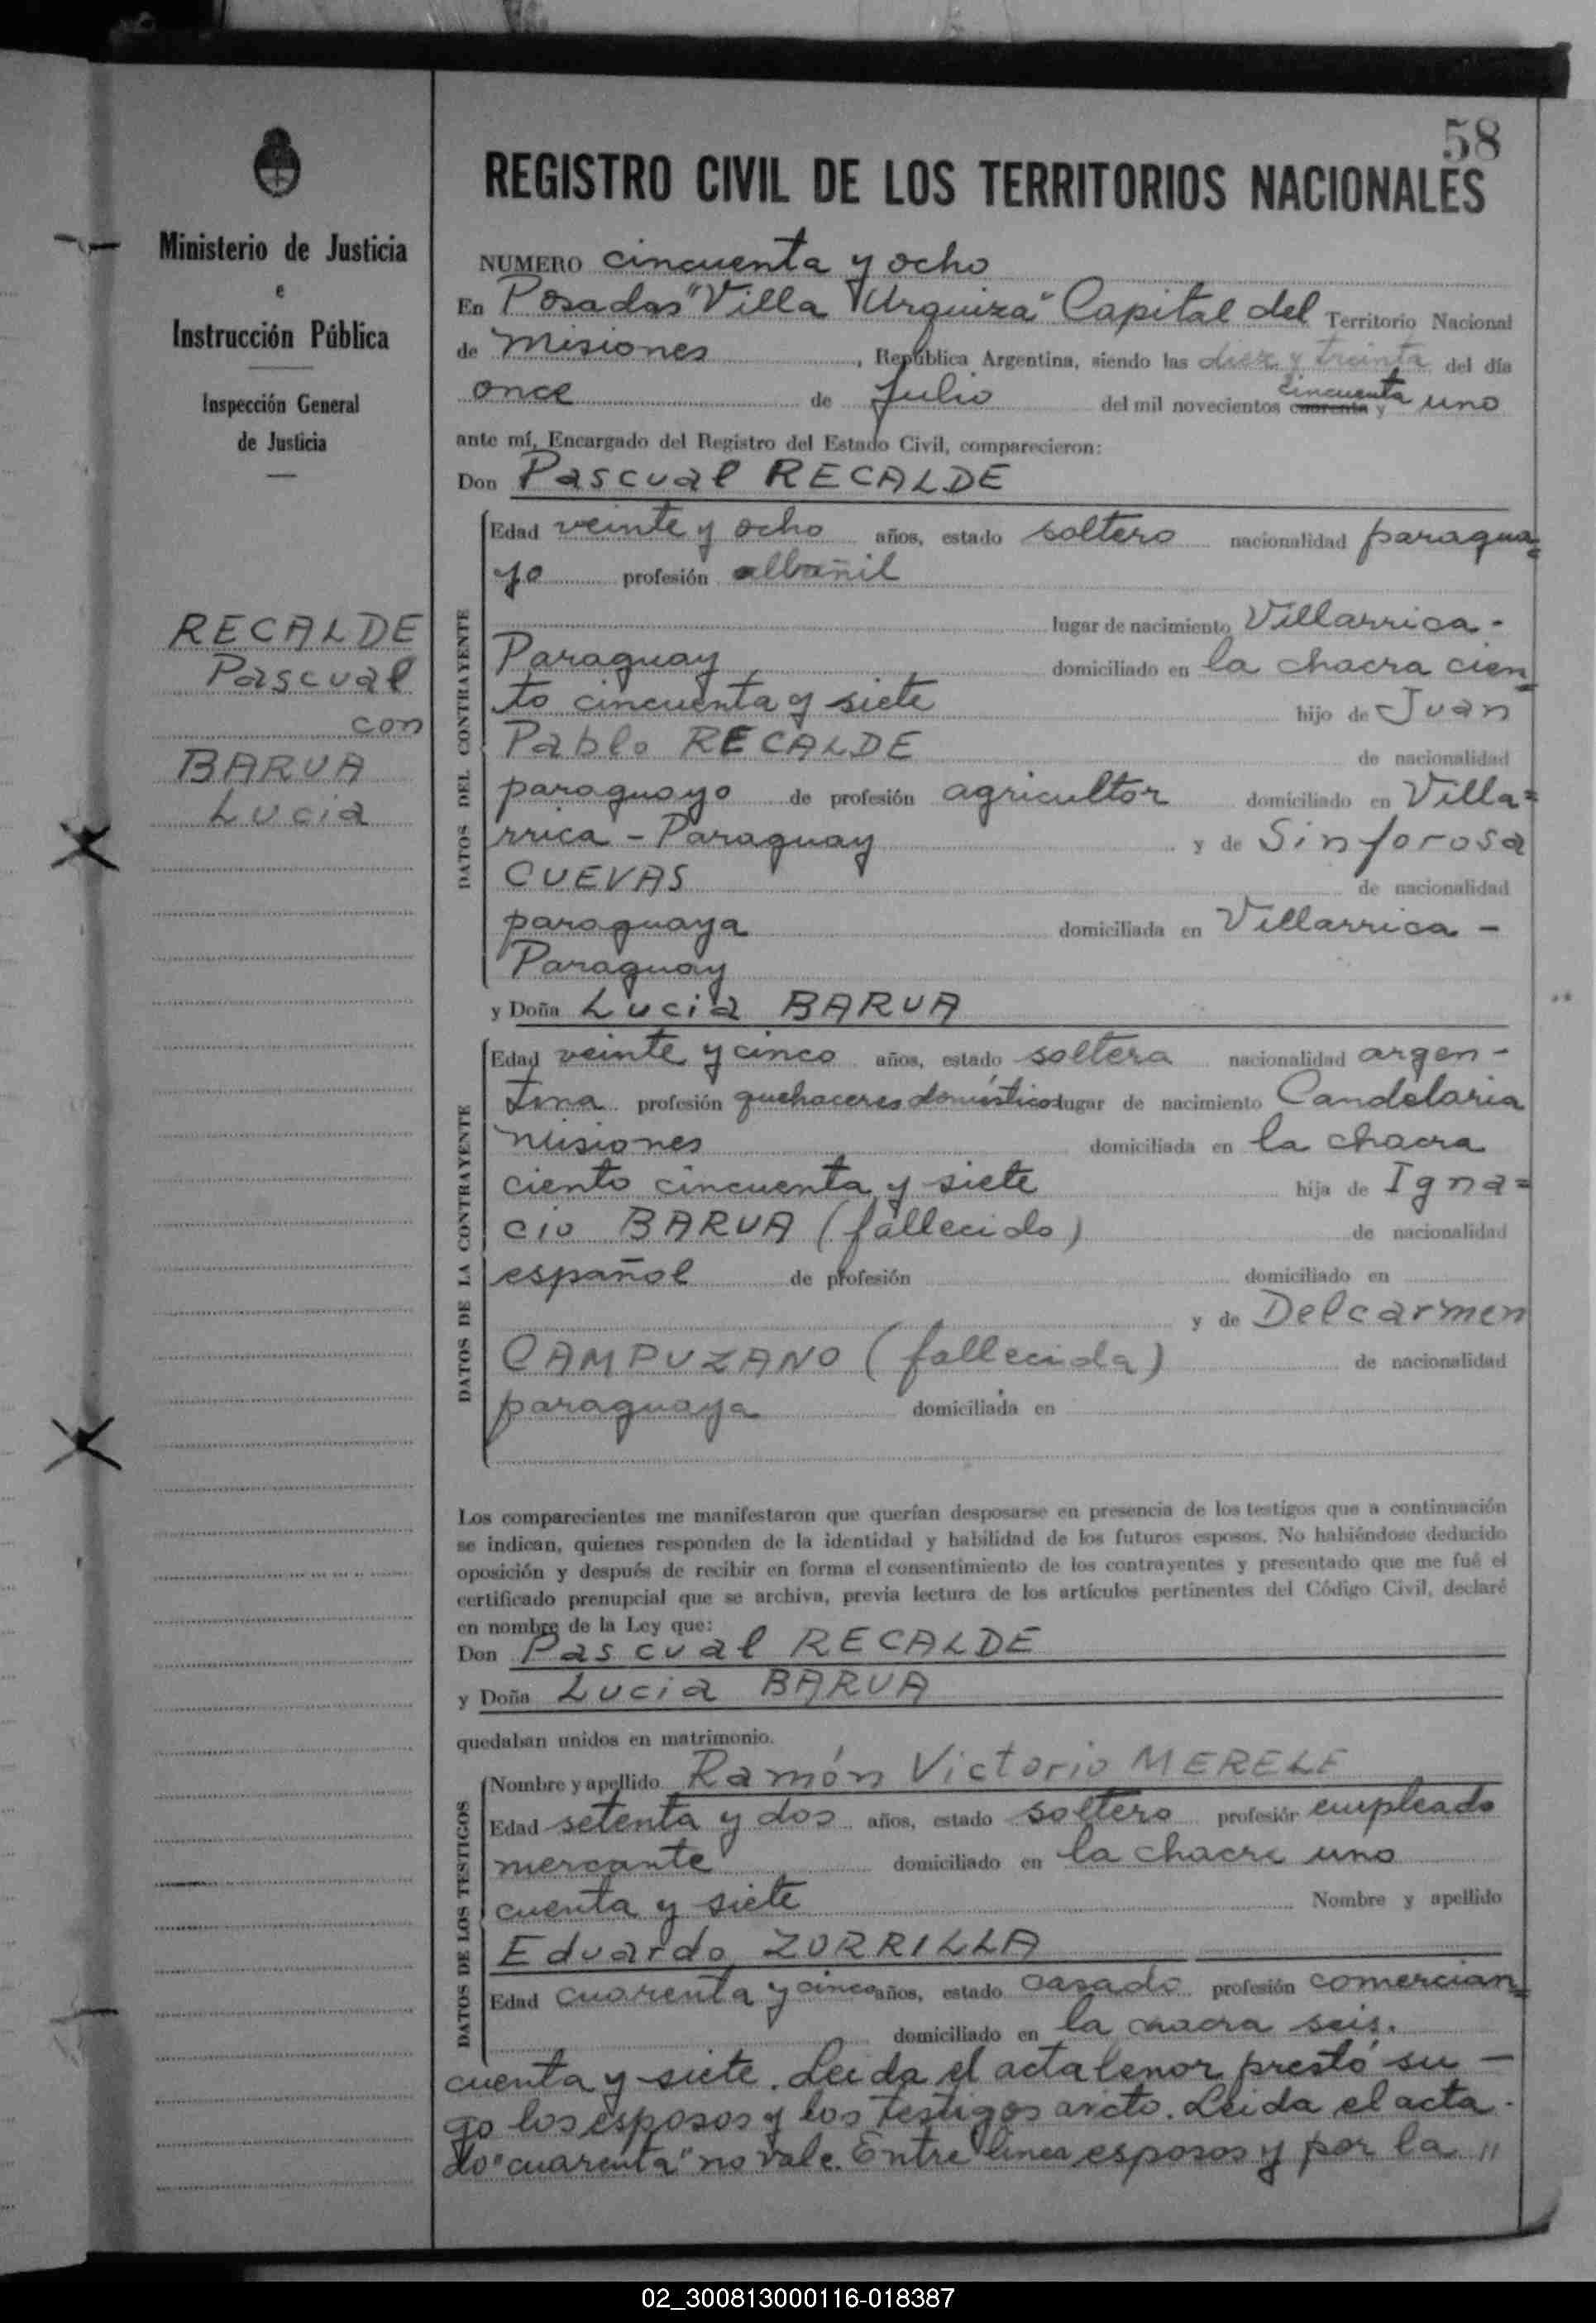 58
REGISTRO CIVIL DE LOS TERRITORIOS NACIONALES
Ministerio de Justicia
e
Instrucción Pública
Inspección General
de Justicia
RECALDE
Pascual
con
BARUA
Lucia
NUMERO cincuenta y ocho
En Posadas "Villa Urquiza" Capital del Territorio Nacional
de Misiones, República Argentina, siendo las diez y treinta del día
cincuenta
once de Julio del mil novecientos cuarenta y uno
ante mí, Encargado del Registro del Estado Civil, comparecieron:
Don Pascual RECALDE
DATOS DEL CONTRAYENTE
Edad veinte y ocho años, estado soltero nacionalidad paragua=
yo profesión albañil
lugar de nacimiento Villarrica -
Paraguay domiciliado en la chacra cien=
to cincuenta y siete hijo de Juan
Pablo RECALDE de nacionalidad
paraguayo de profesión agricultor domiciliado en Villa=
rrica - Paraguay y de Sinforosa
CUEVAS de nacionalidad
paraguaya domiciliada en Villarrica -
Paraguay
y Doña Lucia BARUA
DATOS DE LA CONTRAYENTE
Edad veinte y cinco años, estado soltera nacionalidad argen -
tina profesión quehaceres domésticos lugar de nacimiento Candelaria
Misiones domiciliada en la chacra
ciento cincuenta y siete hija de Igna=
cio BARUA (fallecido) de nacionalidad
español de profesión domiciliado en
y de Delcarmen
CAMPUZANO (fallecida) de nacionalidad
paraguaya domiciliada en
Los comparecientes me manifestaron que querían desposarse en presencia de los testigos que a continuación
se indican, quienes responden de la identidad y habilidad de los futuros esposos. No habiéndose deducido
oposición y después de recibir en forma el consentimiento de los contrayentes y presentado que me fué el
certificado prenupcial que se archiva, previa lectura de los artículos pertinentes del Código Civil, declaré
en nombre de la Ley que:
Don Pascual RECALDE
y Doña Lucia BARUA
quedaban unidos en matrimonio.
DATOS DE LOS TESTIGOS
Nombre y apellido Ramón Victorio MERELE
Edad setenta y dos años, estado soltero profesión empleado
mercante domiciliado en la chacra uno
cuenta y siete Nombre y apellido
Eduardo ZORRILLA
Edad cuarenta y cinco años, estado casado profesión comercian=
domiciliado en la chacra seis.
cuenta y siete. Leida el acta prestó su -
go los esposos y los testigos Leida el acta -
do "cuarenta" no vale. Entre linea esposos y por la "
02_300813000116-018387